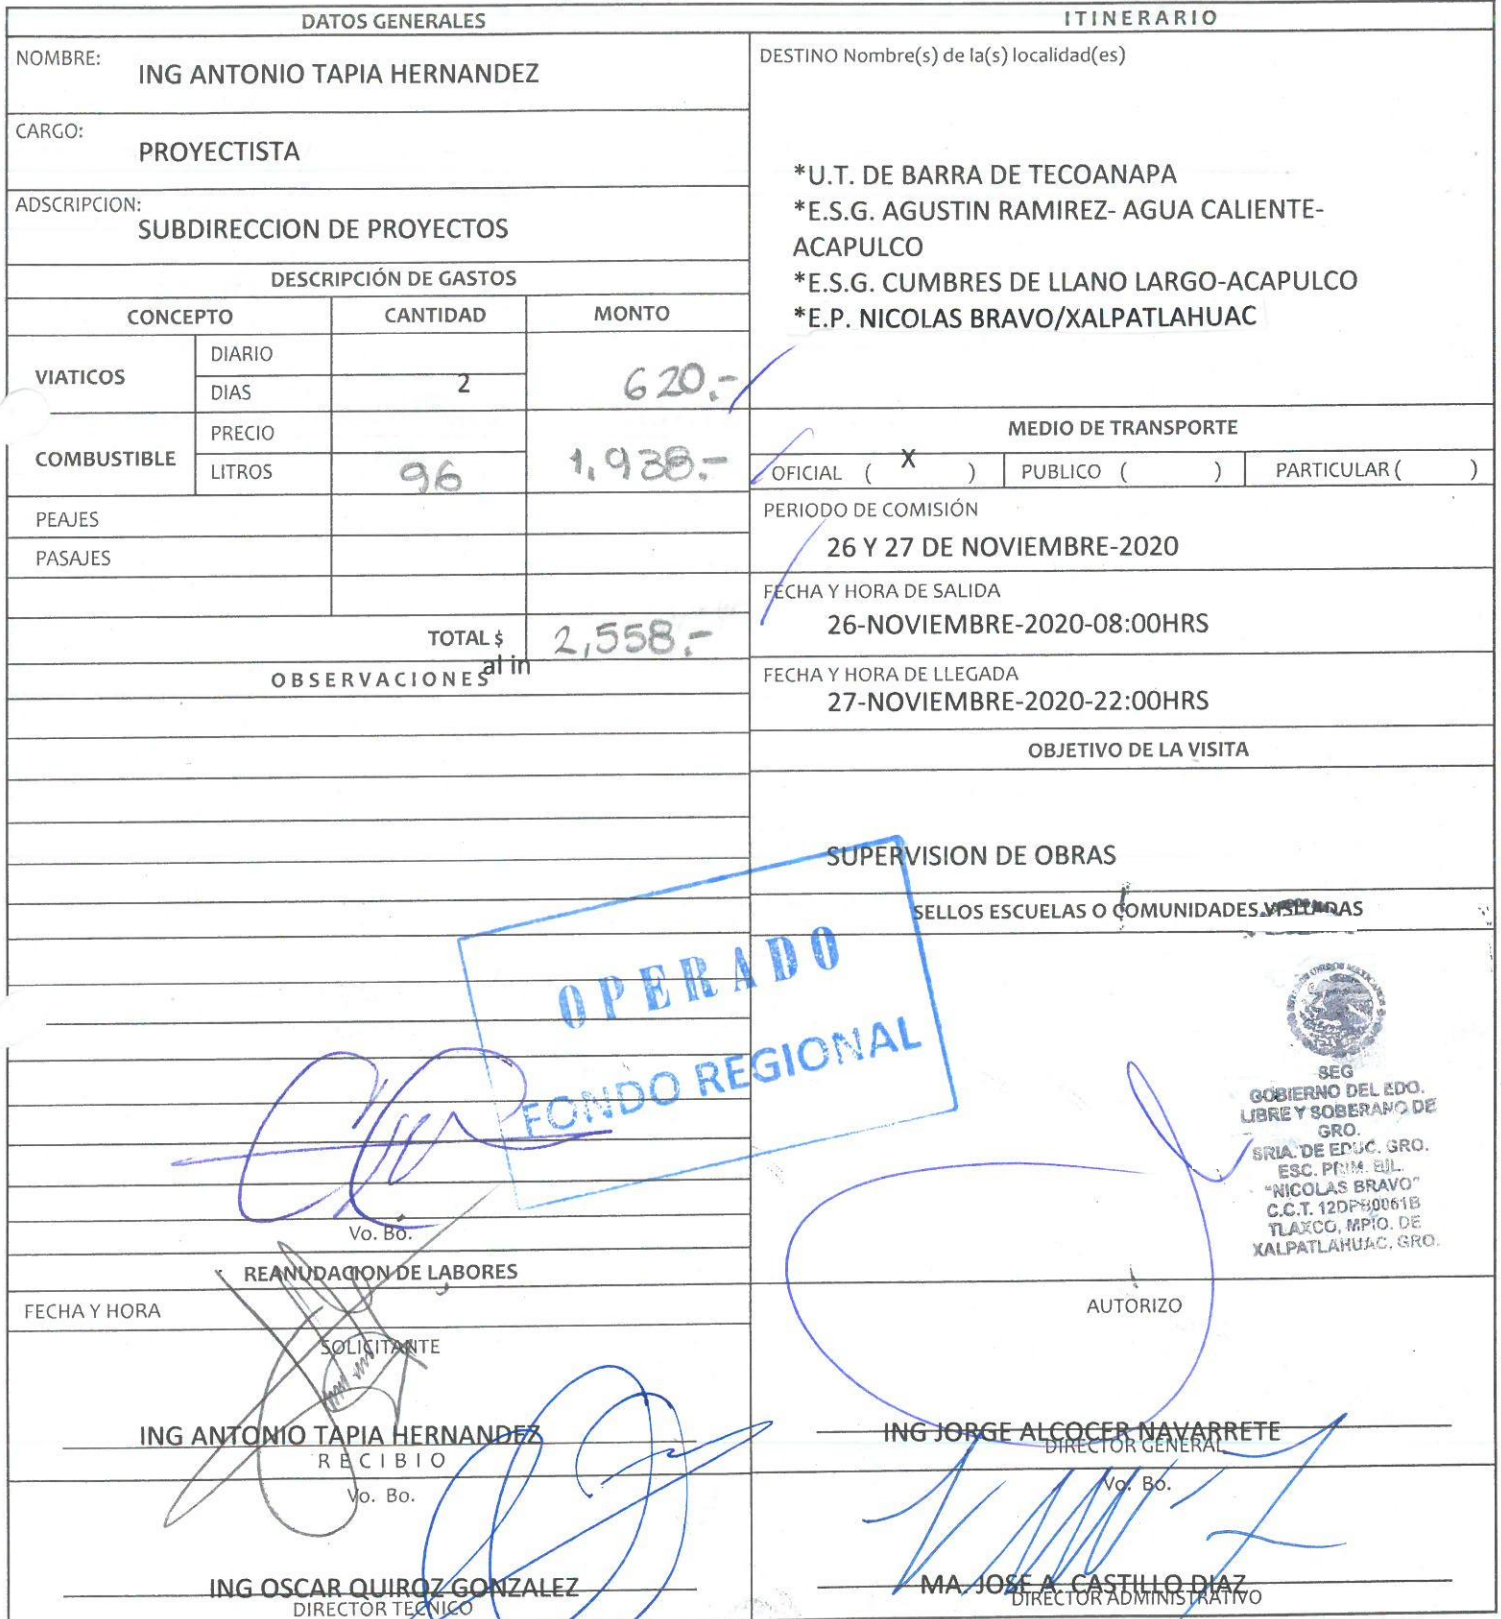 DATOS GENERALES
NOMBRE:
ING ANTONIO TAPIA HERNANDEZ
CARGO:
PROYECTISTA
ADSCRIPCION:
SUBDIRECCION DE PROYECTOS
DESCRIPCIÓN DE GASTOS
CONCEPTO CANTIDAD MONTO
VIATICOS DIARIO
DIAS 2 620.-
COMBUSTIBLE PRECIO
LITROS 96 1,938.-
PEAJES
PASAJES
TOTAL $ 2,558.-
al in
OBSERVACIONES
Vo. Bo.
REANUDACION DE LABORES
FECHA Y HORA
SOLICITANTE
ING ANTONIO TAPIA HERNANDEZ
RECIBIO
Vo. Bo.
ING OSCAR QUIROZ GONZALEZ
DIRECTOR TECNICO
ITINERARIO
DESTINO Nombre(s) de la(s) localidad(es)
*U.T. DE BARRA DE TECOANAPA
*E.S.G. AGUSTIN RAMIREZ- AGUA CALIENTE-
ACAPULCO
*E.S.G. CUMBRES DE LLANO LARGO-ACAPULCO
*E.P. NICOLAS BRAVO/XALPATLAHUAC
MEDIO DE TRANSPORTE
OFICIAL ( X ) PUBLICO ( ) PARTICULAR ( )
PERIODO DE COMISIÓN
26 Y 27 DE NOVIEMBRE-2020
FECHA Y HORA DE SALIDA
26-NOVIEMBRE-2020-08:00HRS
FECHA Y HORA DE LLEGADA
27-NOVIEMBRE-2020-22:00HRS
OBJETIVO DE LA VISITA
SUPERVISION DE OBRAS
SELLOS ESCUELAS O COMUNIDADES VISITADAS
OPERADO
FONDO REGIONAL
SEG
GOBIERNO DEL EDO.
LIBRE Y SOBERANO DE
GRO.
SRIA. DE EDUC. GRO.
ESC. PRIM. BIL.
"NICOLAS BRAVO"
C.C.T. 12DPB0061B
TLAXCO, MPIO. DE
XALPATLAHUAC, GRO.
AUTORIZO
ING JORGE ALCOCER NAVARRETE
DIRECTOR GENERAL
Vo. Bo.
MA. JOSE A. CASTILLO DIAZ
DIRECTOR ADMINISTRATIVO